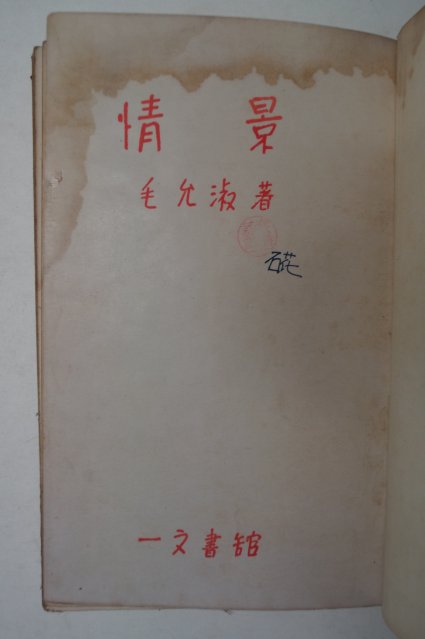 情景
毛允淑著
一文書舘